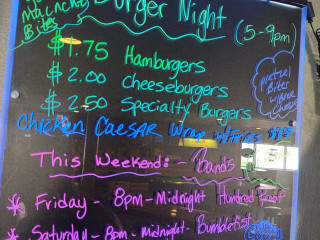 Macnchz
Bites
Burger Night
(5-9pm)
$1.75 Hamburgers
$2.00 Cheeseburgers
$2.50 Specialty Burgers
Pretzel
Bites
w/Beer
Cheese
Chicken Caesar Wrap w/Fries
This Weekend: - Bands
Friday - 8pm - Midnight Hundred Proof
Saturday - 8pm - Midnight - Bumblefist